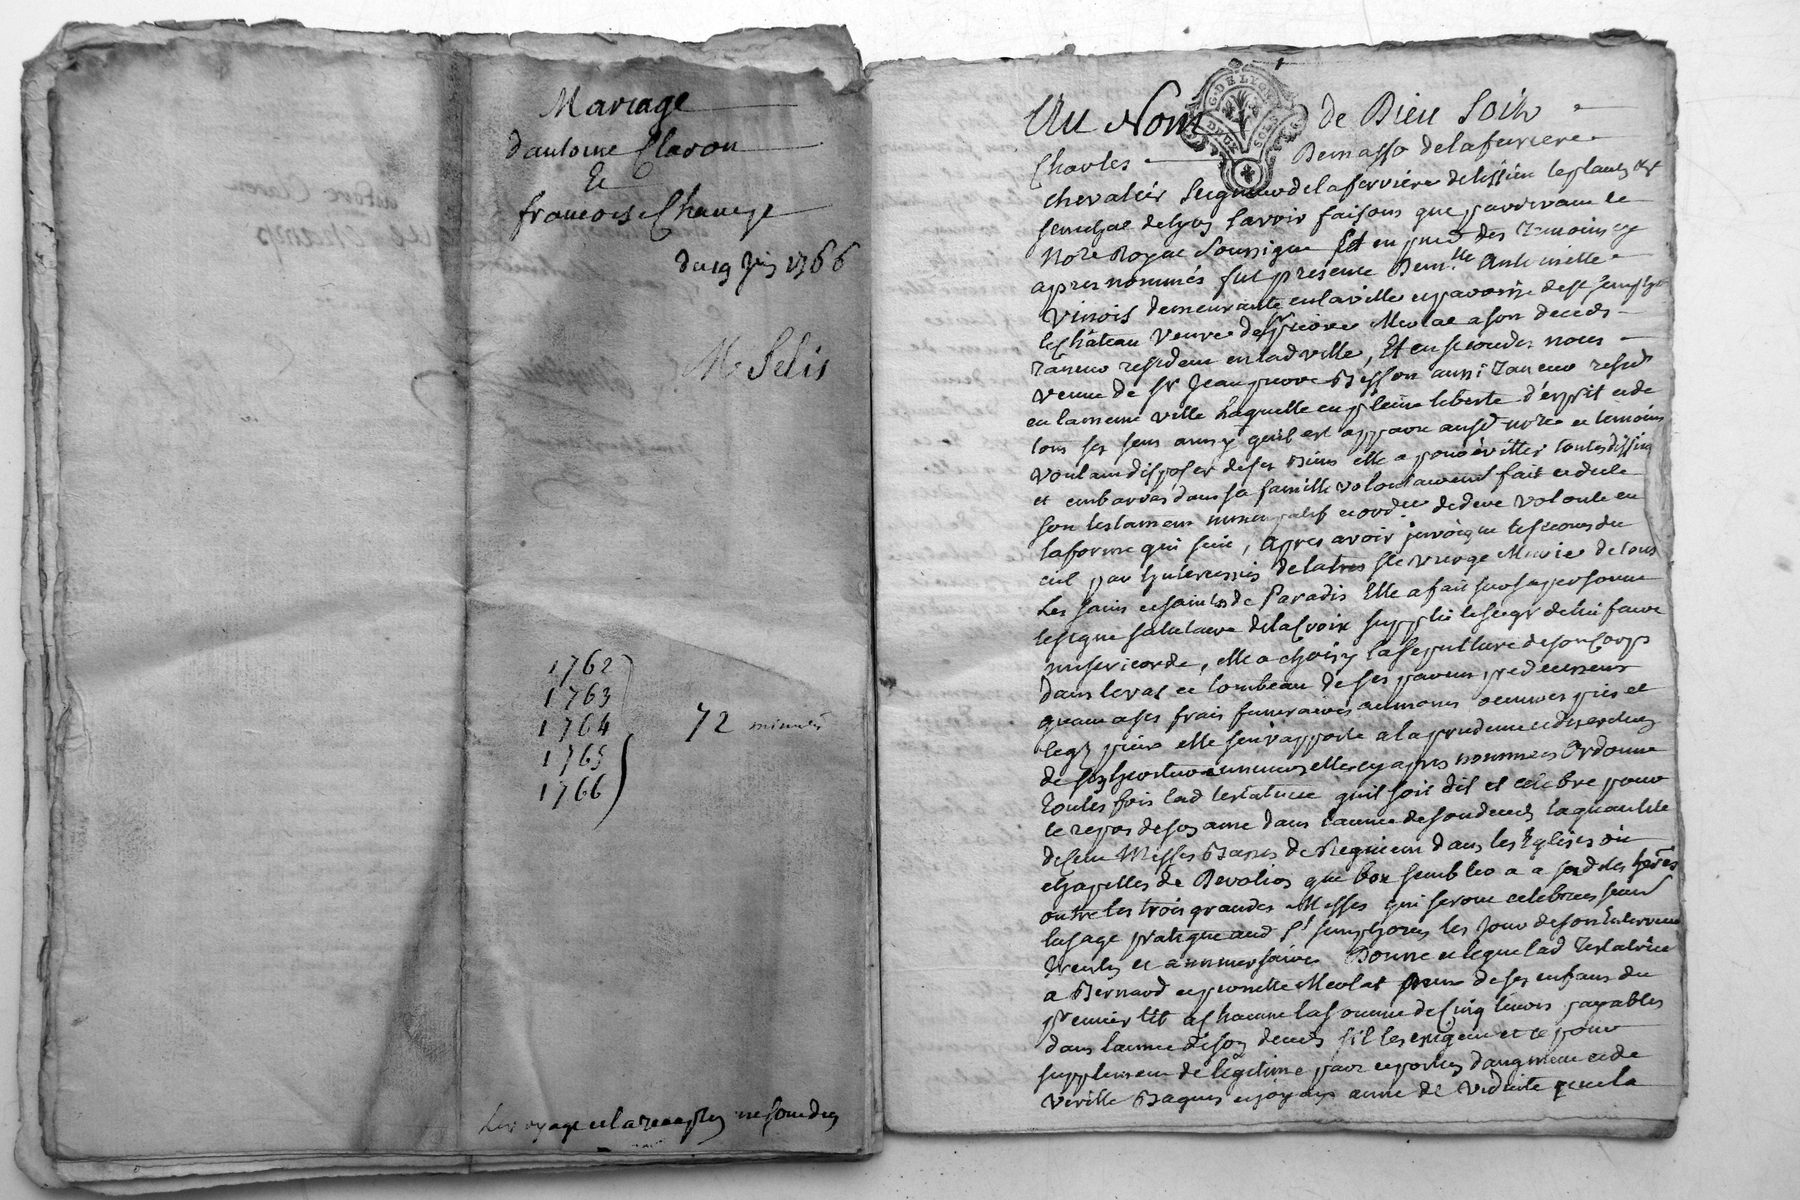 Mariage
d'antoine Claron
Et
francoise Chaneze
du 19 Juin 1766
M Selis
1762
1763
1764
1765
1766
72 minutes
Les voyage et la reception ne sont dus
G. DE LYON
DEUX SOLS
Au Nom de Dieu Soit
Charles Demasso delaferriere
chevalier seigneur de la ferriere de lissieu le plantin &c
senechal de lyon savoir faisons que pardevant le
Not.e Royal soussigne Et en pnce des temoins cy
apres nommés fut presente Dem.lle Antoinette
Vinois demeurante en la ville et paroisse de st simphor
le Château veuve de Sr pierre Meolat a son deceds
Taneur resident en lad ville, Et en secondes noces
veuve de Sr Jean pierre Besson aussi Taneur resid.
en la meme ville Laquelle en pleine liberte d'esprit et de
tous ses sens ainsy quil est apparu aud not.re et temoins
voulant disposer de ses Biens elle a pour éviter toutes dission
et embarras dans sa famille volontairement fait et dicte
son testament nuncupatif et ordce de dere volonte en
la forme qui suit, Apres avoir invoque le secours du
ciel par l'intercession de la tres ste vierge Marie de tous
Les saints et saintes de Paradis Elle a fait sur sa personne
le signe salutaire de la Croix supplié le seigr de lui faire
misericorde, elle a choisy la sepulture de son corps
dans le vas et tombeau de ses parens predecesseurs
quant a ses frais funeraires aumones oeuvres pies et
legs pieux elle s'en rapporte a la prudence et discretion
de ses heritiers universelles cy apres nommées Ordonne
Toutes fois lad testatrice qu'il soit dit et celebre pour
le repos de son ame dans l'annee de son deceds la quantité
de cent Messes Basses de Requiem dans les Eglises ou
chapelles de Devotion que bon semblera a sesd. des heres
outre les trois grandes Messes qui seront celebrees suiv.
lusage pratique aud St simphorien les jour de son Enterrement
trentin et anniversaire Donne et legue lad Testatrice
a Bernard et pierrette Meolat deux de ses enfans du
premier lit a chacun la somme de Cinq livres payables
dans l'annee de son deceds s'il les exigent et ce pour
supplement de legitime part et portion d'augment et de
virille Bagues et joyaux annee de viduite que la